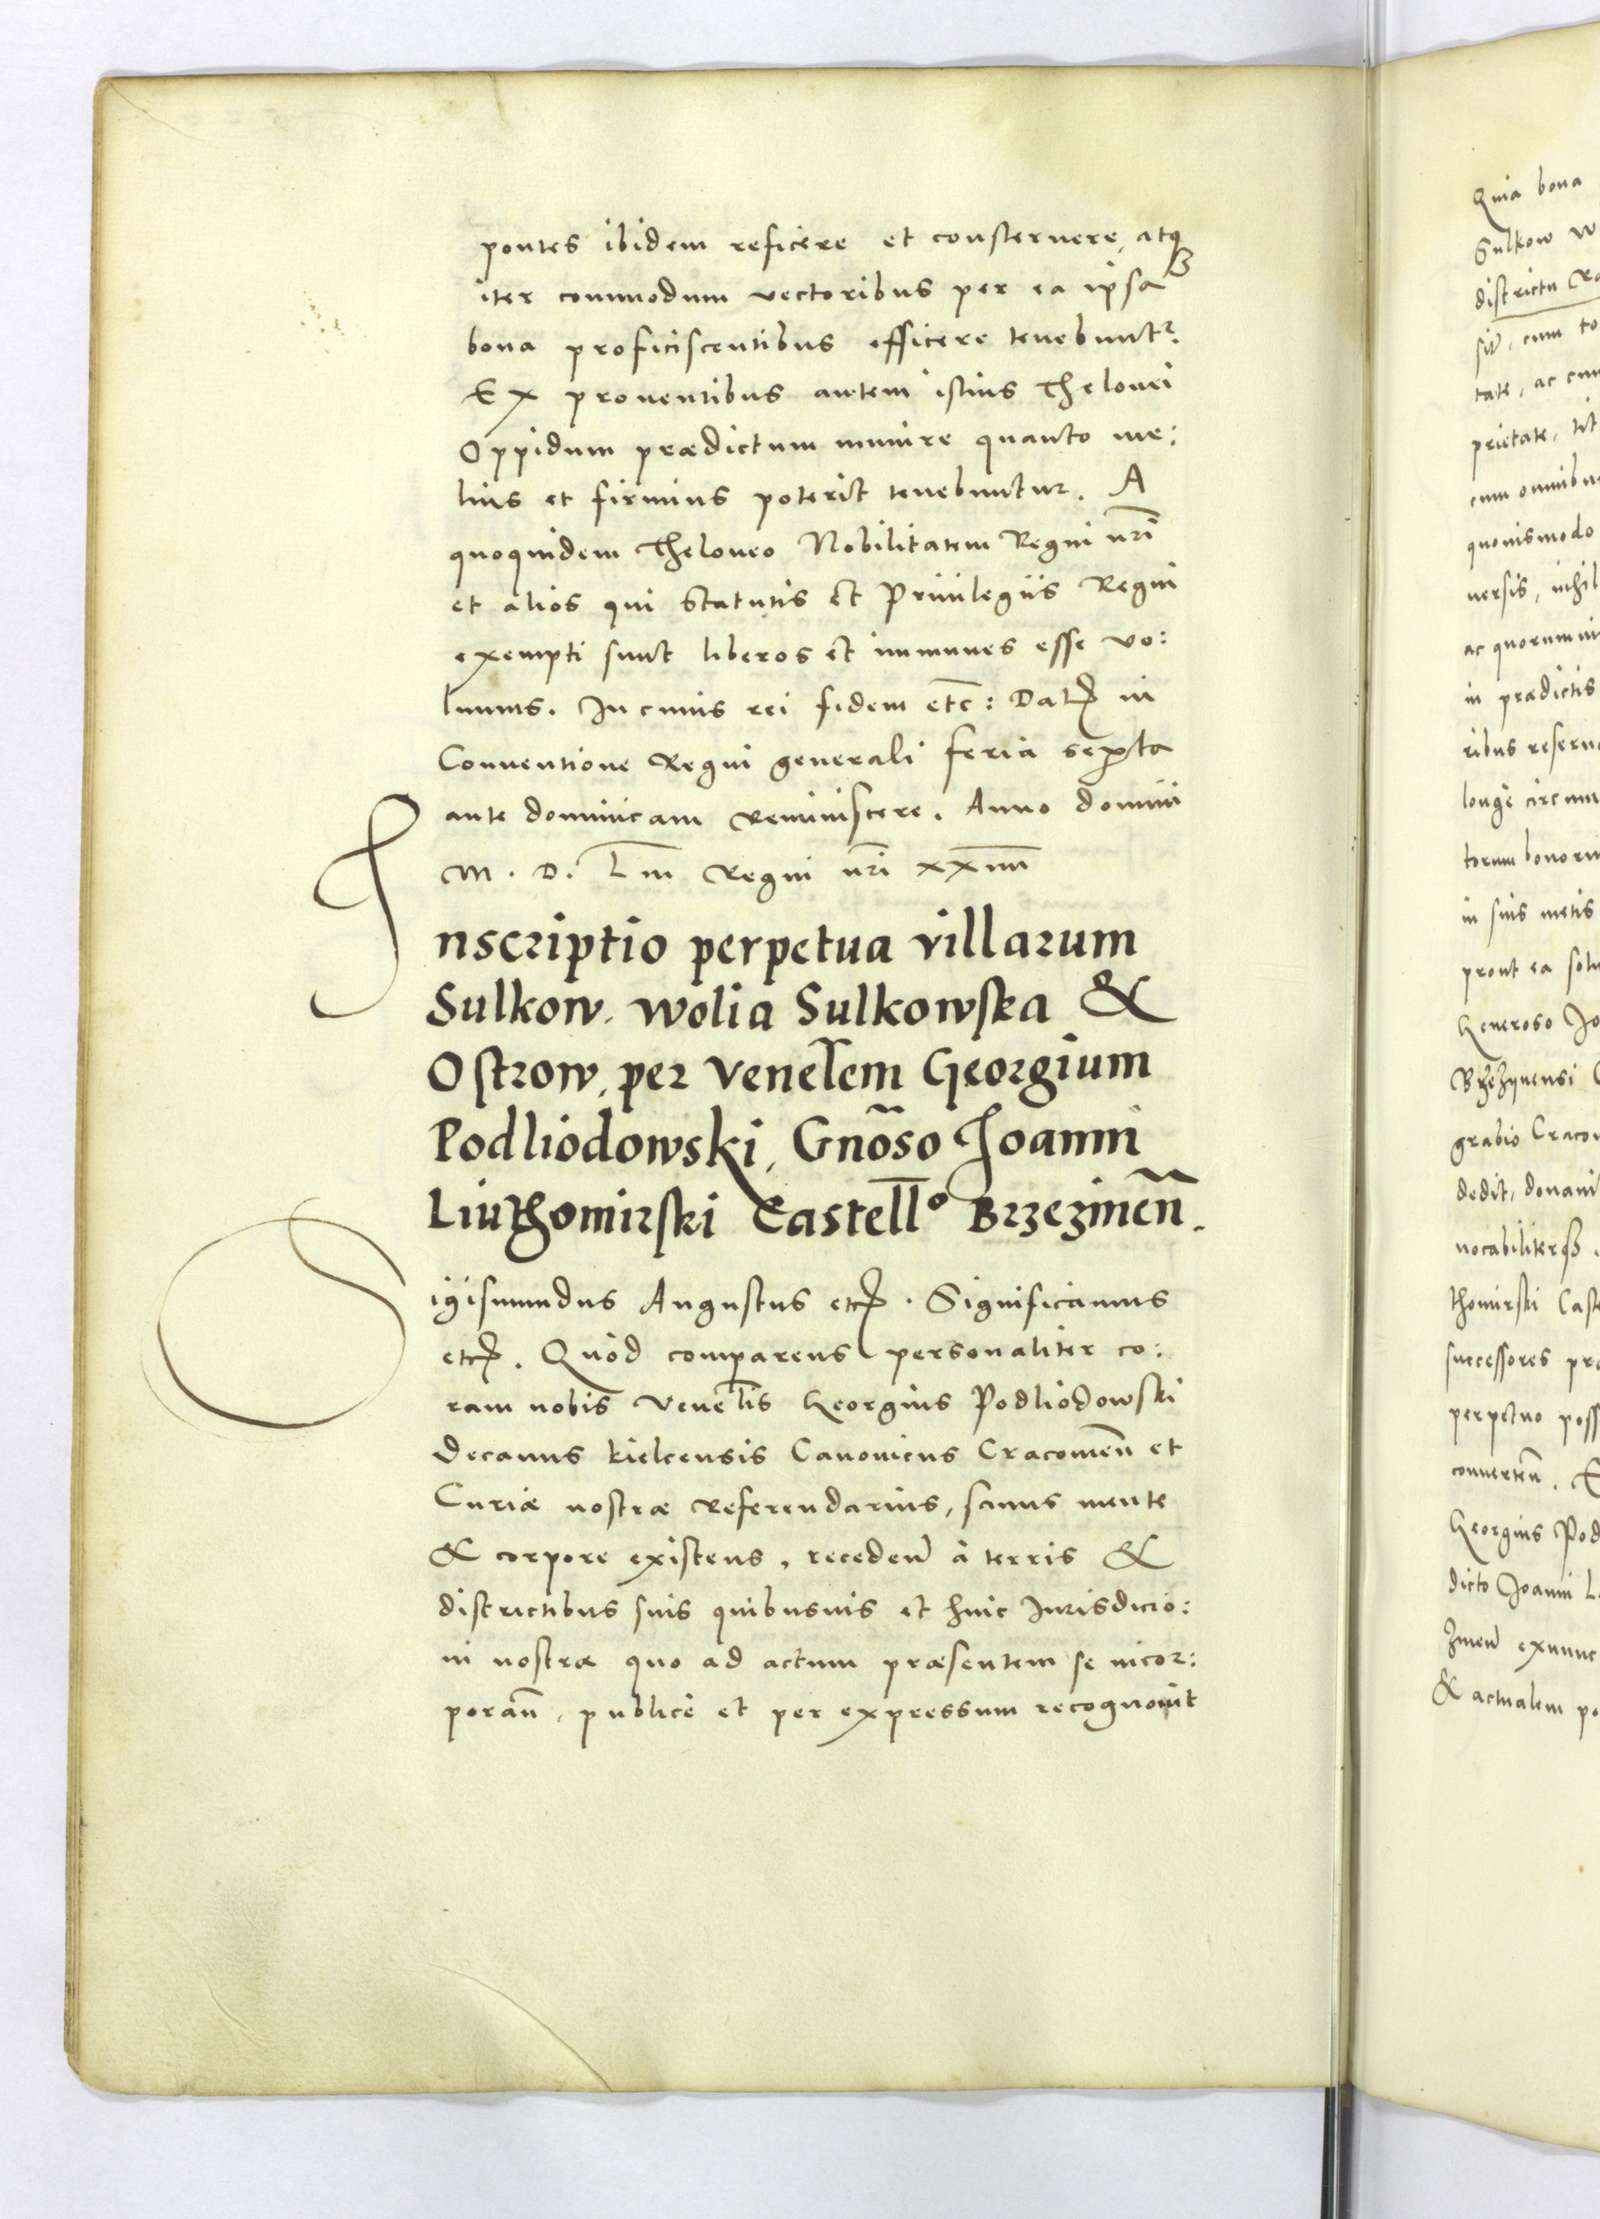 pontes ibidem reficere et consternere, atq3
iter commodum vectoribus per ea ipsa
bona proficiscentibus efficere tenebunt2.
Ex proventibus autem istius Thelonei
Oppidum prædictum munire quanto me:
lius et firmius poterit tenebuntur. A
quoquidem Theloneo Nobilitatem Regni nr̃i
et alios qui Statutis et Privilegiis Regni
exempti sunt liberos et immunes esse vo:
lumus. In cuius rei fidem etc̄: Datꝭ in
Conventione Regni generali feria sexta
ante dominicam Reminiscere. Anno domini
M. D. Liii Regni nr̃i xxiiii
Inscriptio perpetua villarum
Sulkow. Wolia Sulkowska &
Ostrow, per Venelem Georgium
Podliodowski, Gnõso Joanni
Liuthomirski Castellº Brzezineñ.
Sigismundus Augustus etcꝭ. Significamus
etcꝭ. Quòd comparens personaliter co:
ram nobis Venelis Georgius Podliodowski
Decanus kielcensis Canonicus Cracovieñ et
Curiæ nostræ Referendarius, sanus mente
& corpore existens, recedeñ à terris &
districtibus suis quibusuis et huic Iurisdicio:
ni nostræ quo ad actum præsentem se incor:
porañ, publicè et per expressum recognouit
Quia bona
Sulkow W
districtu Ra
cum to
tate, ac cum
prietate, tit
cum omnibus
quouismodo
uersis, nihil
ac quorumui
in prædictis
ribus reserua
longè circum
torum bonoru
in suis metis
prout ea solu
Generoso Jo
Brzezinensi C
grabio Cracou
dedit, donauit
uocabiliterq3
thomirski Caste
successores pra
perpetuo poss
conuerteñ. E
Georgius Pod
dicto Joanni L
zineñ exnunc
& actualem po